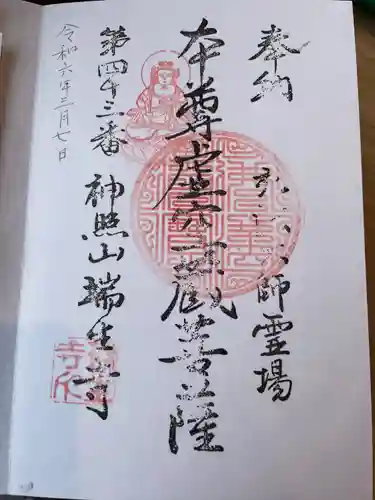 奉納
師霊場
本尊虚空蔵菩薩
第四十三番 神照山 瑞生寺
令和六年三月七日